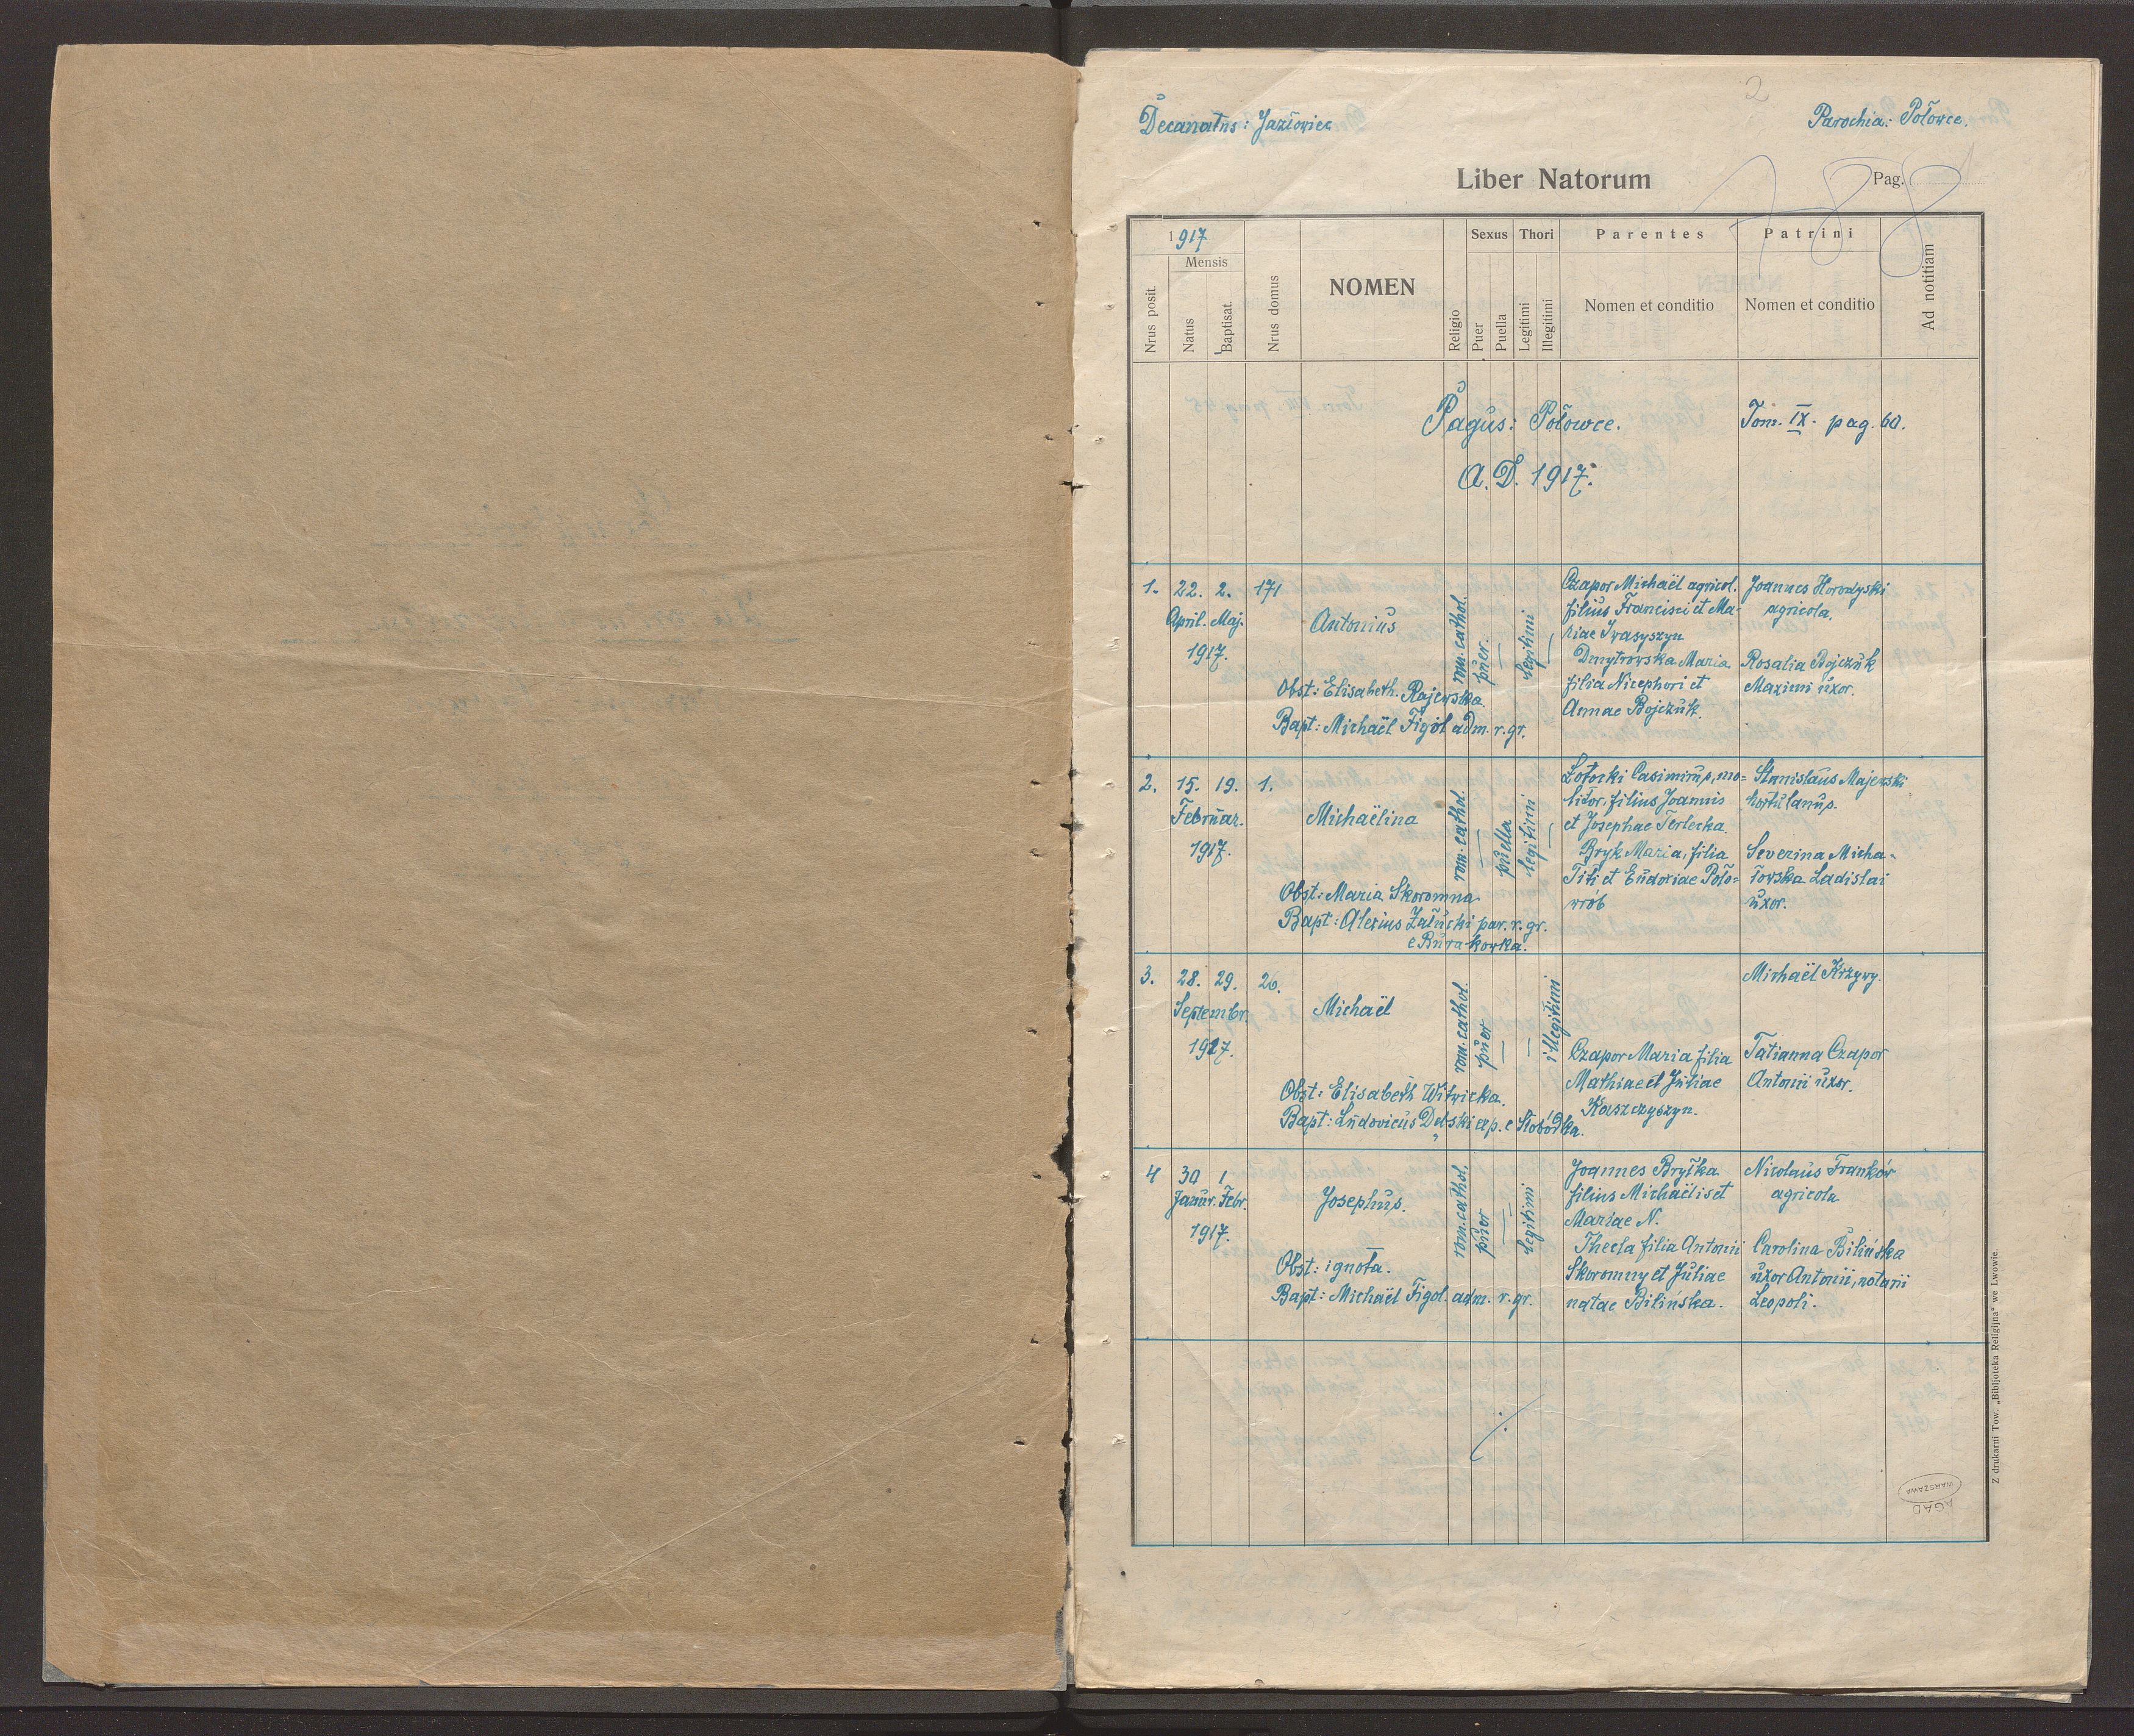 2
Decanatus: Jazłowiec
Parochia: Połowce.
Liber Natorum
Pag.
788
1917
Mensis
Nrus posit.
Natus
Baptisat.
Nrus domus
NOMEN
Religio
Sexus
Puer
Puella
Thori
Legitimi
Illegitimi
Parentes
Nomen et conditio
Patrini
Nomen et conditio
Ad notitiam
Pagus: Połowce.
Tom. IX. pag. 60.
A. D. 1917.
1. 22. 2. 171
April. Maj.
1917.
Antonius
rom. cathol.
puer.
—
legitimi
—
Czapor Michaël agricol.
filius Francisci et Ma-
riae Iwasyszyn
Dmytrowska Maria
filia Nicephori et
Annae Bojczuk.
Joannes Horodyski
agricola.
Rosalia Bojczuk
Maximi uxor.
Obst: Elisabeth. Rajewska.
Bapt: Michaël Figol adm. r. gr.
2. 15. 19. 1.
Februar.
1917.
Michaëlina
rom. cathol.
—
puella
legitimi
—
Łotocki Casimirus, mo=
litor, filius Joannis
et Josephae Terlecka.
Bryk Maria, filia
Titi et Eudoxiae Poło=
wrób
Stanislaus Majewski
hortulanus.
Severina Micha-
łowska Ladislai
uxor.
Obst: Maria Skoromna
Bapt: Alexius Załucki par. r. gr.
e Burakowka.
3. 28. 29. 26.
Septembr.
1917.
Michaël
rom. cathol.
puer
—
—
illegitimi
Czapor Maria filia
Mathiae et Juliae
Kaszczyszyn.
Michaël Krzywy.
Tatianna Czapor
Antonii uxor.
Obst: Elisabeth Witwicka.
Bapt: Ludovicus Dębski exp. e Słobódka.
4 30 1
Januar. Febr.
1917.
Josephus.
rom. cathol.
puer
—
legitimi
Joannes Bryłka
filius Michaëlis et
Mariae N.
Thecla filia Antonii
Skoromny et Juliae
natae Bilińska.
Nicolaus Franków
agricola
Carolina Bilińska
uxor Antonii, notarii
Leopoli.
Obst: ignota.
Bapt: Michaël Figol. adm. r. gr.
Z drukarni Tow. „Bibljoteka Religijna" we Lwowie.
AGAD
WARSZAWA